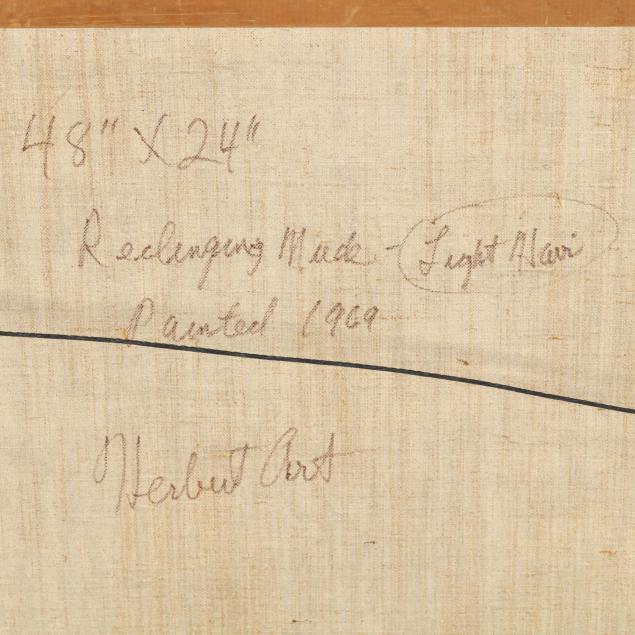 48" X 24"
Reclinging Nude - Light Hair
Painted 1969
Herbert Art